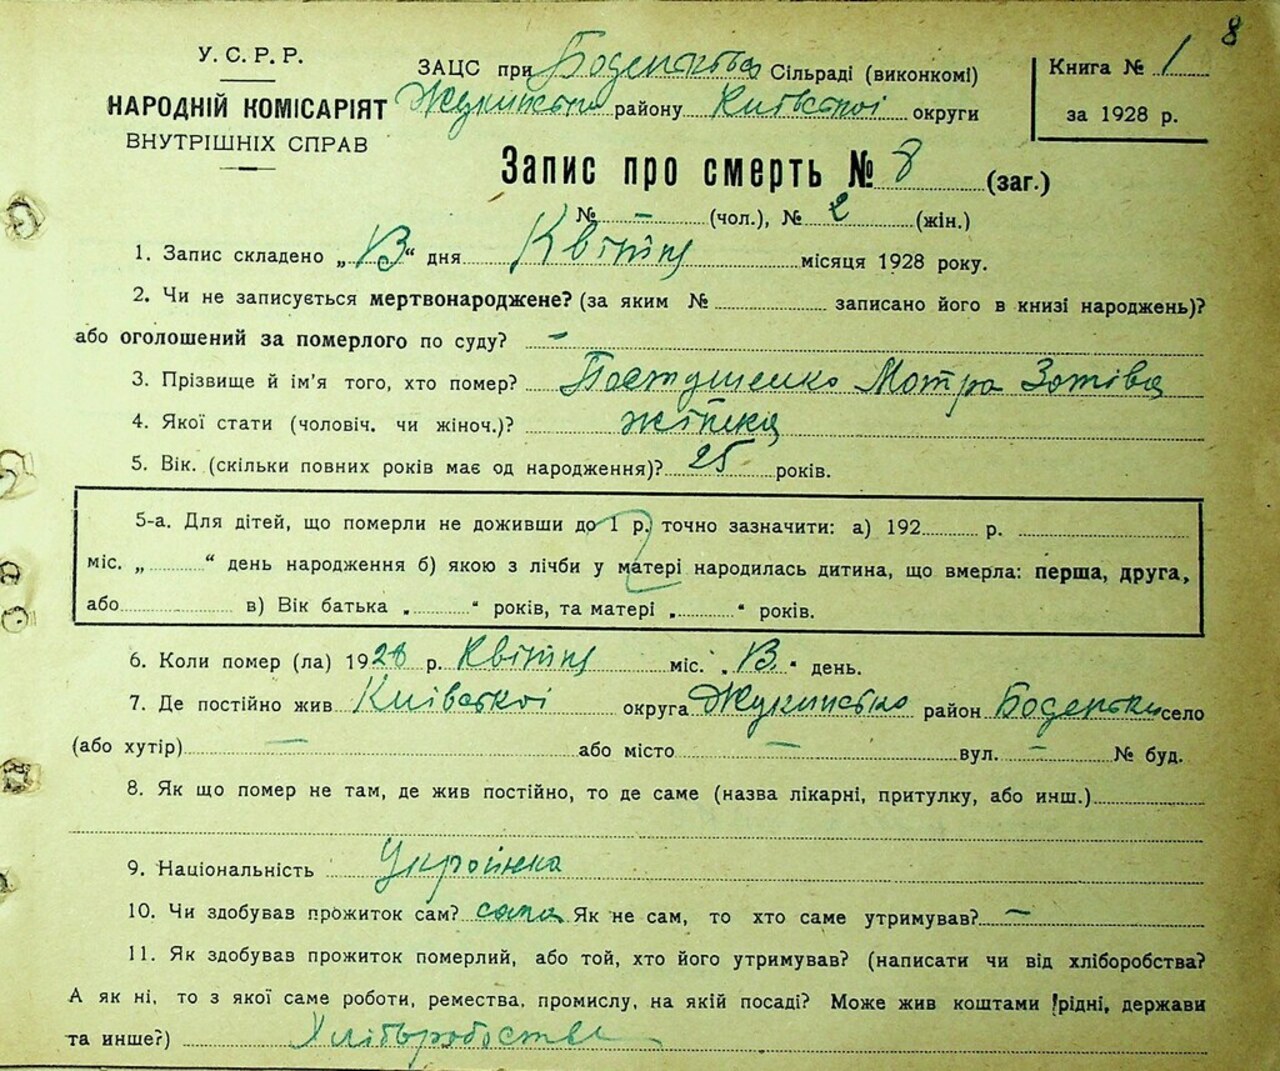 8
У. С. Р. Р.
НАРОДНІЙ КОМІСАРІЯТ
ВНУТРІШНІХ СПРАВ
ЗАЦС при Боденьківск Сільраді (виконкомі)
Жукинськ району Київської округи
Книга № 1
за 1928 р.
Запис про смерть № 8 (заг.)
№ – (чол.), № 2 (жін.)
1. Запис складено „13“ дня Квітня місяця 1928 року.
2. Чи не записується мертвонароджене? (за яким № записано його в книзі народжень)?
або оголошений за померлого по суду? –
3. Прізвище й ім'я того, хто помер? Мотра Зотівна
4. Якої стати (чоловіч. чи жіноч.)? жінка
5. Вік. (скільки повних років має од народження)? 25 років.
5-а. Для дітей, що померли не доживши до 1 р. точно зазначити: а) 192 р.
міс. „ “ день народження б) якою з лічби у матері народилась дитина, що вмерла: перша, друга,
або в) Вік батька „ “ років, та матері „ “ років.
6. Коли помер (ла) 1928 р. Квітня міс. „13.“ день.
7. Де постійно жив Київської округа Жукинсько район Боденьки село
(або хутір) – або місто – вул. – № буд.
8. Як що помер не там, де жив постійно, то де саме (назва лікарні, притулку, або инш.)
9. Національність Українка
10. Чи здобував прожиток сам? сама Як не сам, то хто саме утримував? –
11. Як здобував прожиток померлий, або той, хто його утримував? (написати чи від хліборобства?
А як ні, то з якої саме роботи, ремества, промислу, на якій посаді? Може жив коштами рідні, держави
та инше?) Хліборобства